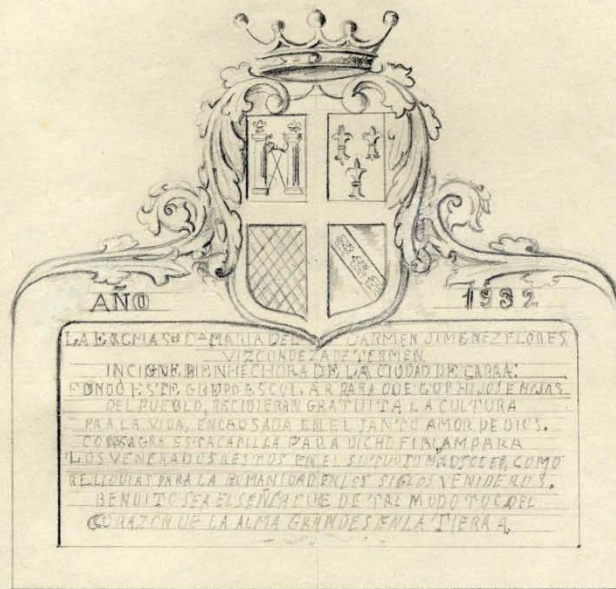 AÑO 1932
LA EXCMA SRA Dª MARIA DEL CARMEN JIMENEZ FLORES
VIZCONDEZA DE TERMEN
INCIGNE BIENHECHORA DE LA CIUDAD DE CABRA:
FUNDO ESTE GRUPO ESCOLAR PARA QUE LOS HIJOS E HIJAS
DEL PUEBLO, RECIBIERAN GRATUITA LA CULTURA
PARA LA VIDA, ENCAUSADA EN EL SANTO AMOR DE DIOS.
CONSAGRA ESTA CAPILLA PARA DICHO FIN, AMPARA
LOS VENERADOS RESTOS EN EL SUNTUOSO MAUSOLEO, COMO
RELIQUIAS PARA LA HUMANIDAD EN LOS SIGLOS VENIDEROS.
BENDITO SEA EL SEÑOR QUE DE TAL MODO TOCO EL
CORAZON DE LA ALMA GRANDES EN LA TIERRA